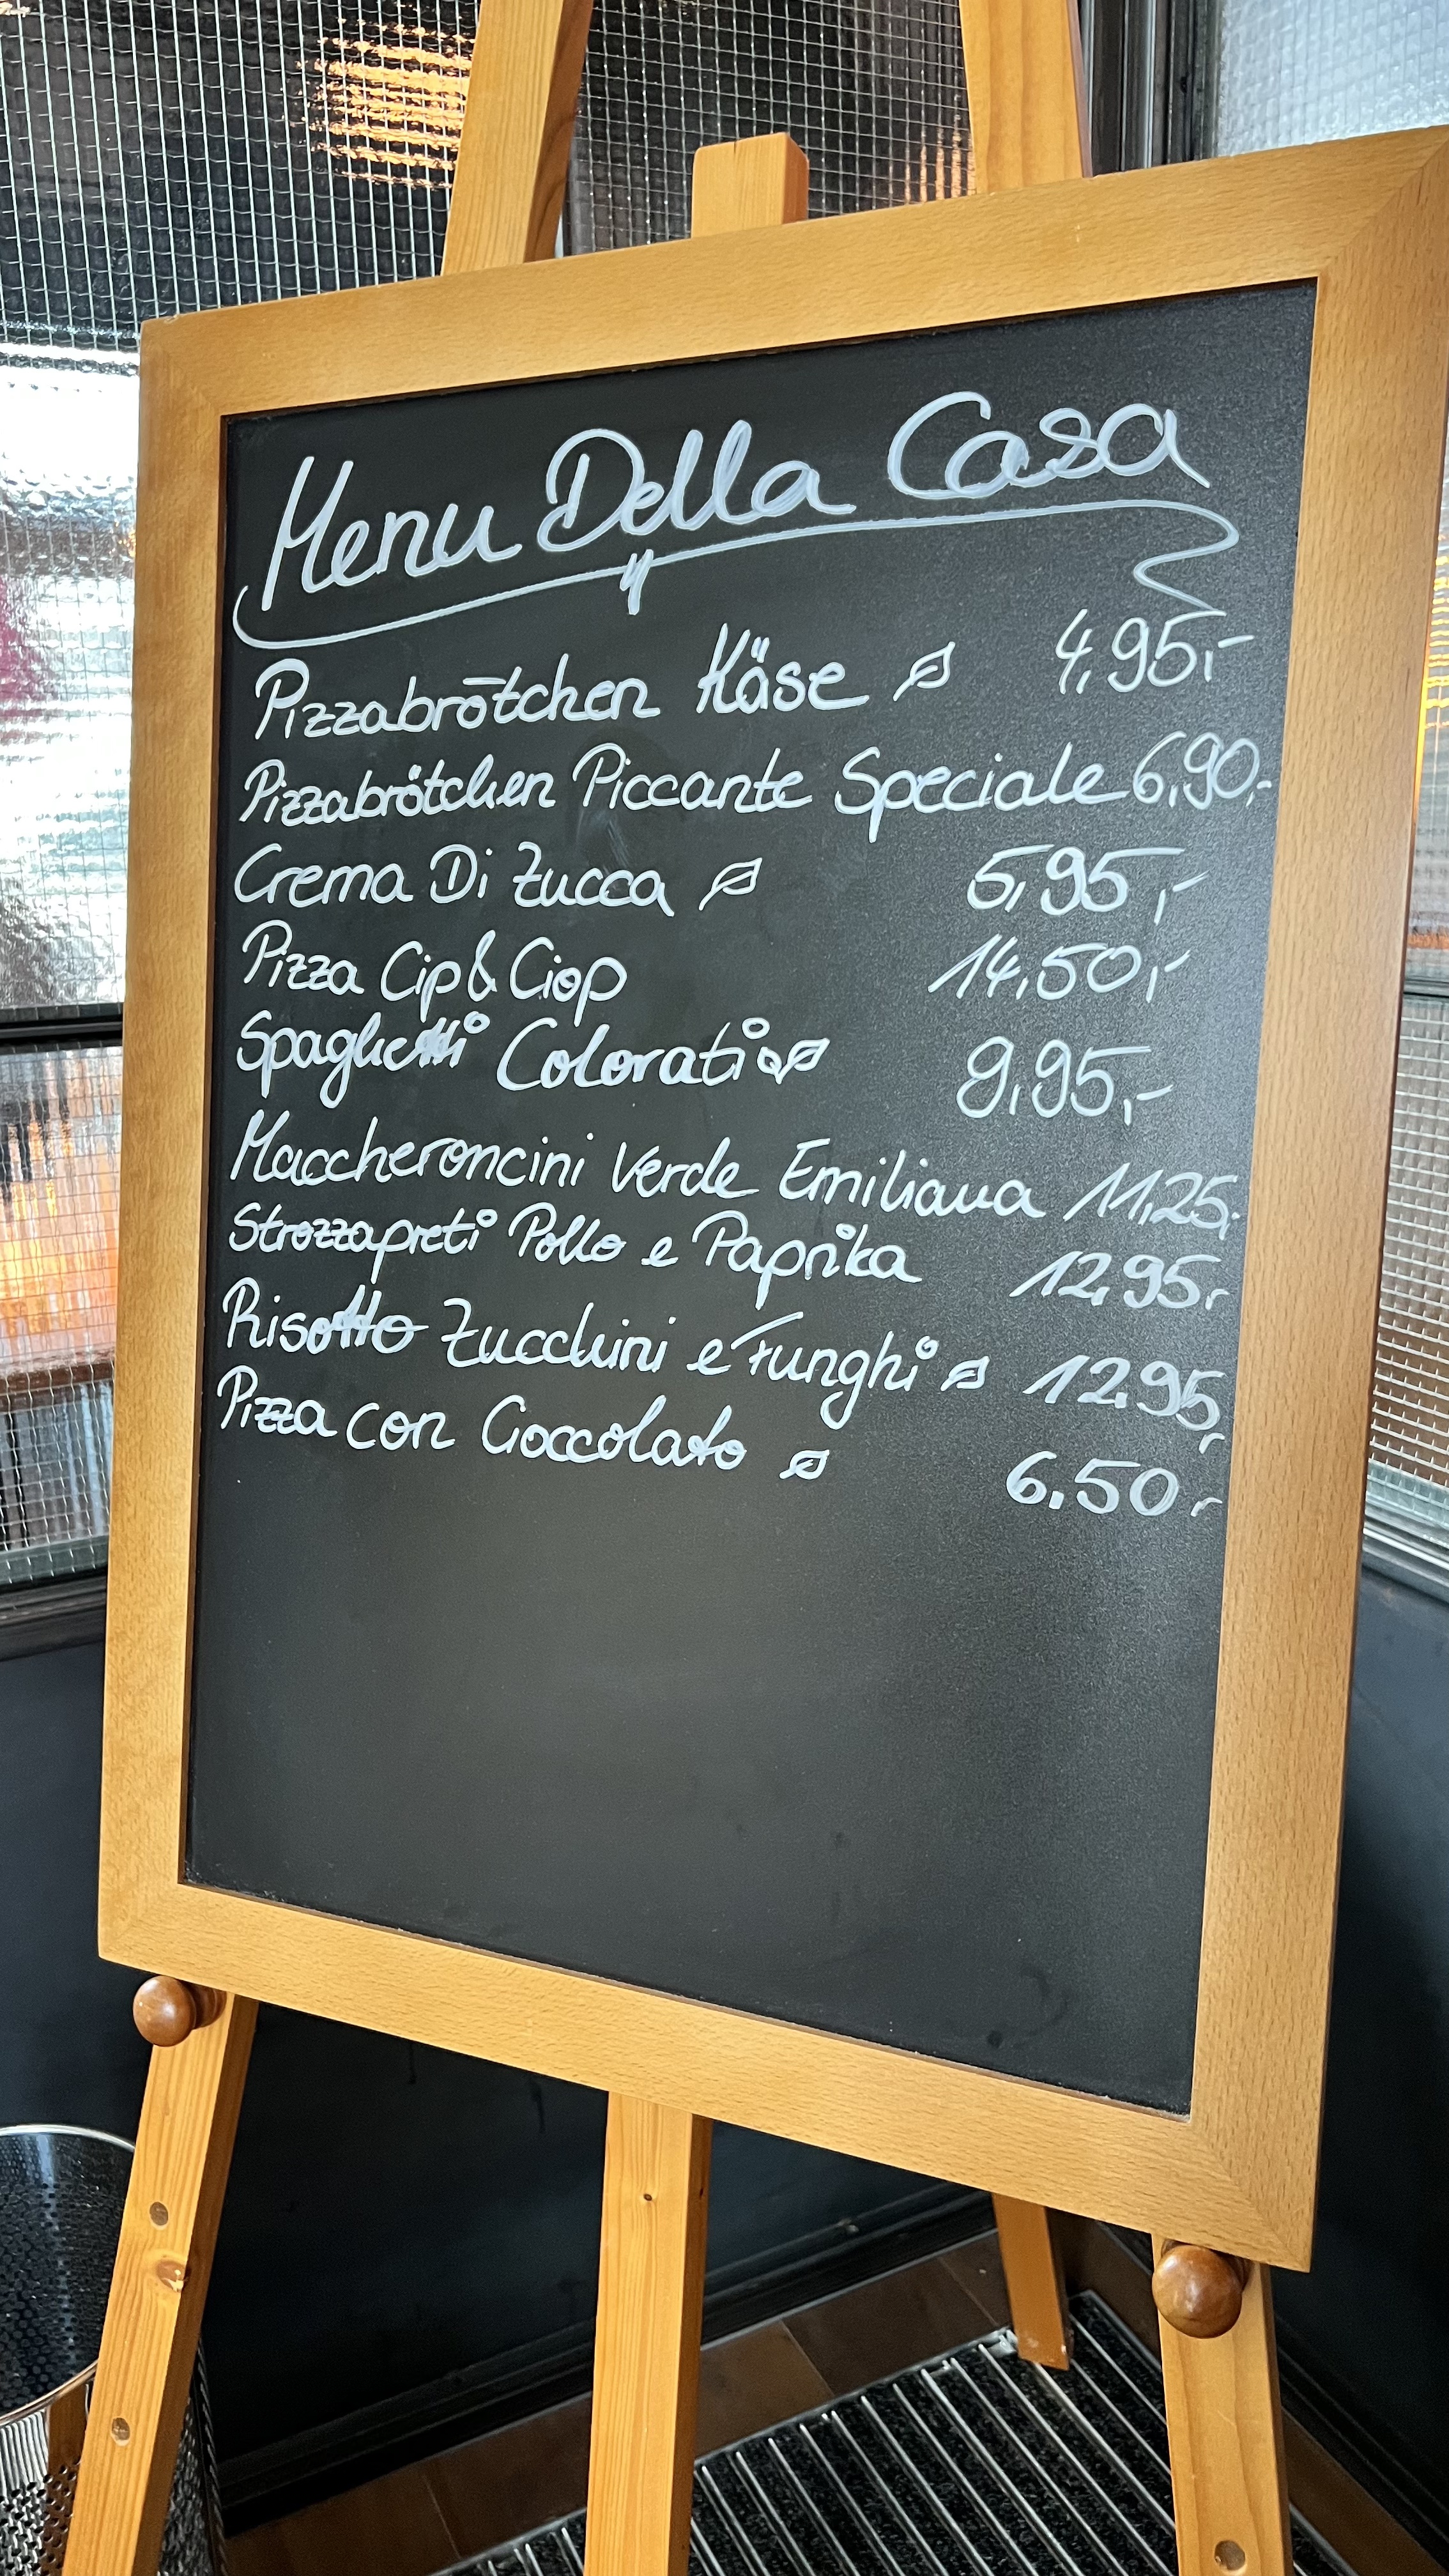 Menu Della Casa
Pizzabrötchen Käse 4,95,-
Pizzabrötchen Piccante Speciale 6,90,-
Crema Di Zucca 5,95,-
Pizza Cip & Ciop 14,50,-
Spaghetti Colorati 9,95,-
Maccheroncini Verde Emiliana 11,25,-
Strozzapreti Pollo e Paprika 12,95,-
Risotto Zucchini e Funghi 12,95,-
Pizza con Cioccolato 6.50,-